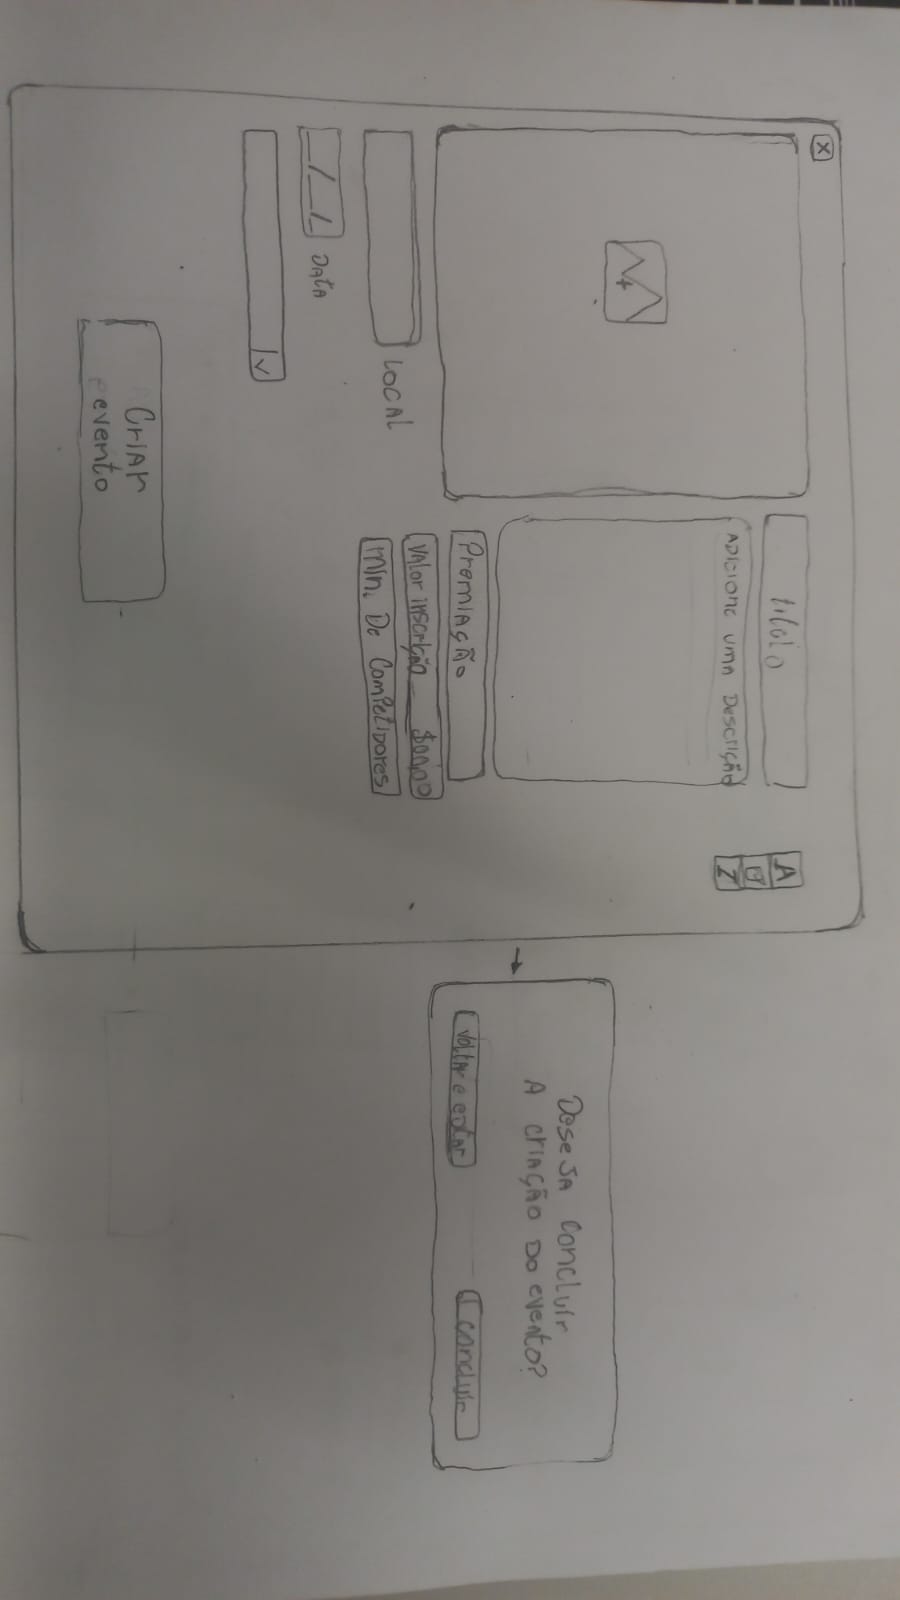 X
titulo
ADICIONE UMA DESCRIÇÃO
A
U
I
PREMIAÇÃO
VALOR INSCRIÇÃO $00,00
MÍN. DE COMPETIDORES
LOCAL
__/__/_ DATA
CRIAR
evento
DESEJA CONCLUIR
A CRIAÇÃO DO EVENTO?
Voltar e editar
CONCLUIR